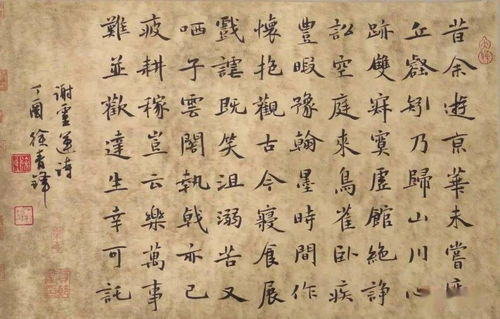 昔余遊京華未嘗廢
丘壑矧乃歸山川心
跡雙寂寞虛館絶諍
訟空庭來鳥雀臥疾
豐暇豫翰墨時間作
懷抱觀古今寢食展
戲謔既笑沮溺苦又
哂子雲閣執戟亦已
疲耕稼豈云樂萬事
難並歡達生幸可託
謝靈運詩
丁酉徐青鋒